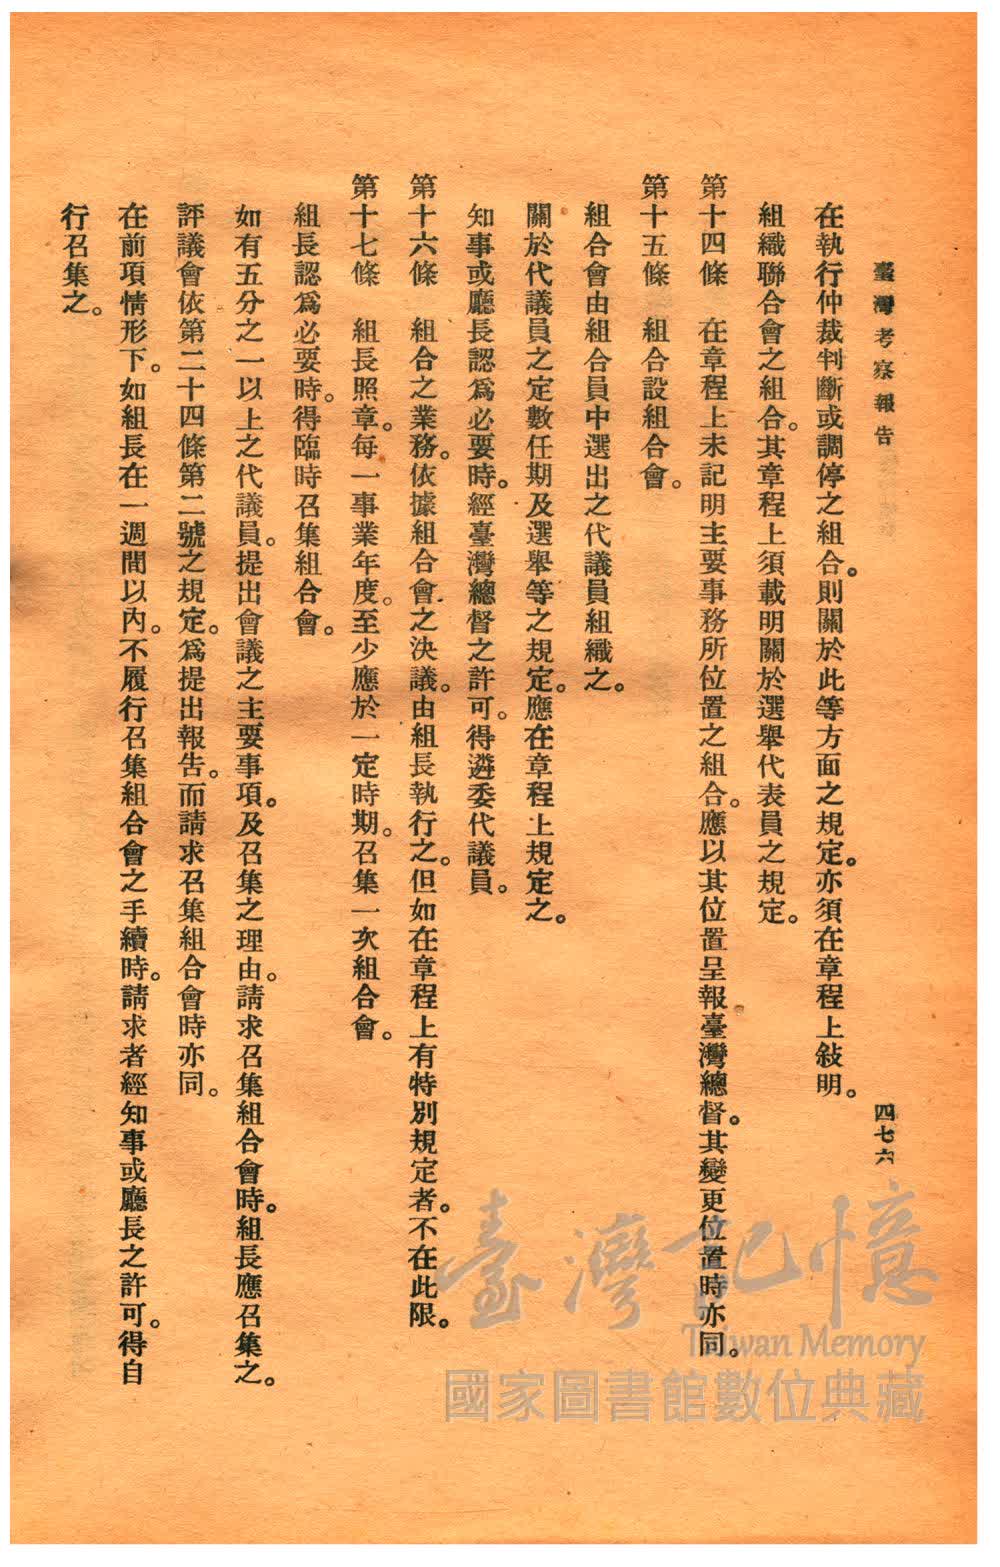 臺灣考察報告
四七六
在執行仲裁判斷或調停之組合。則關於此等方面之規定。亦須在章程上敍明。
組織聯合會之組合。其章程上須載明關於選舉代表員之規定。
第十四條　在章程上未記明主要事務所位置之組合。應以其位置呈報臺灣總督。其變更位置時亦同。
第十五條　組合設組合會。
組合會由組合員中選出之代議員組織之。
關於代議員之定數任期及選舉等之規定。應在章程上規定之。
知事或廳長認爲必要時。經臺灣總督之許可。得遴委代議員。
第十六條　組合之業務。依據組合會之決議。由組長執行之。但如在章程上有特別規定者。不在此限。
第十七條　組長照章。每一事業年度。至少應於一定時期。召集一次組合會。
組長認爲必要時。得臨時召集組合會。
如有五分之一以上之代議員。提出會議之主要事項。及召集之理由。請求召集組合會時。組長應召集之。
評議會依第二十四條第二號之規定。爲提出報告。而請求召集組合會時亦同。
在前項情形下。如組長在一週間以內。不履行召集組合會之手續時。請求者經知事或廳長之許可。得自
行召集之。
臺灣記憶
Taiwan Memory
國家圖書館數位典藏